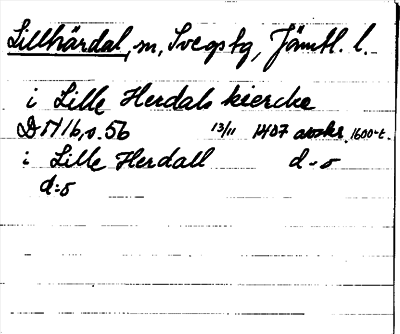 Lillhärdal, sn, Svegs tg, Jämtl. l.
i Lille Herdals kiercke
DN 16, s. 56 13/11 1407 avskr. 1600-t.
i Lille Herdall d:o
d:o